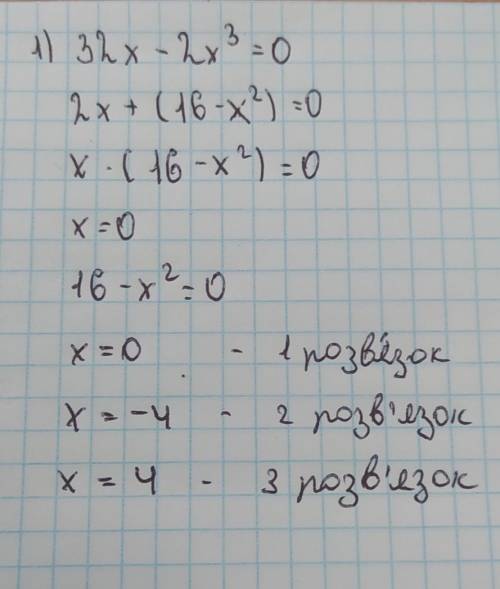 1) 32x - 2x³ = 0
2x + (16 - x²) = 0
x · (16 - x²) = 0
x = 0
16 - x² = 0
x = 0 - 1 розв'язок
x = -4 - 2 розв'язок
x = 4 - 3 розв'язок